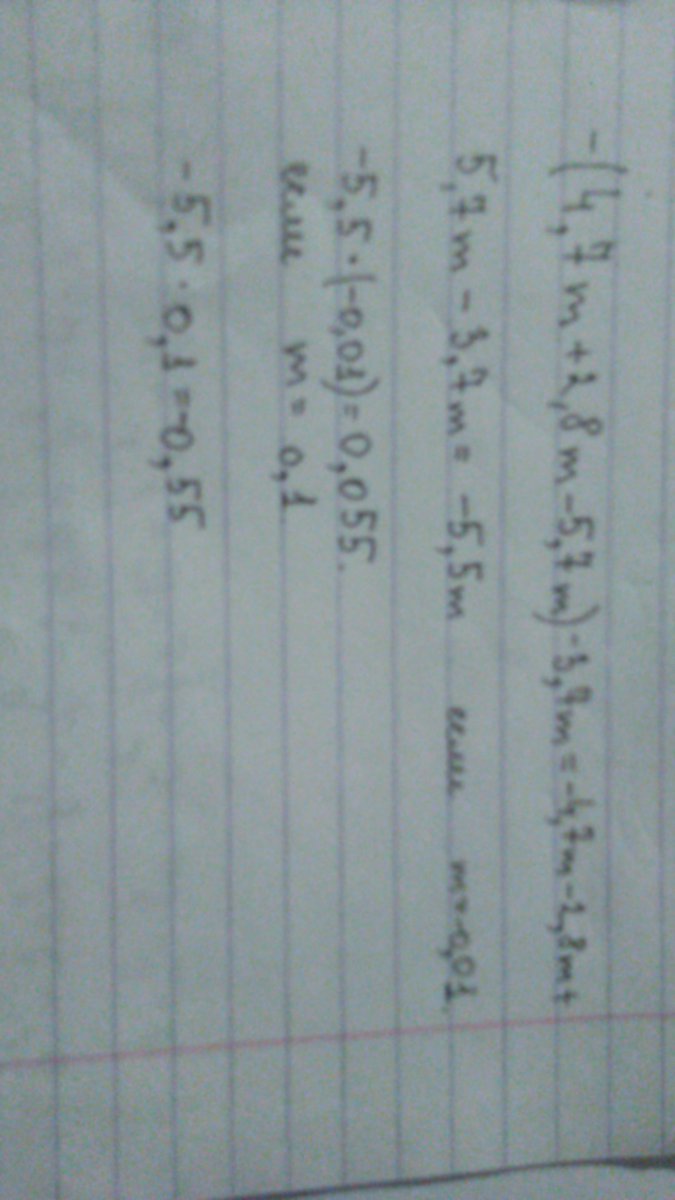 -(4,7m+2,8m-5,7m)-3,7m=-4,7m-2,8m+
5,7m-3,7m= -5,5m если m=-0,01.
-5,5·(-0,01)=0,055.
если m= 0,1
-5,5·0,1=-0,55